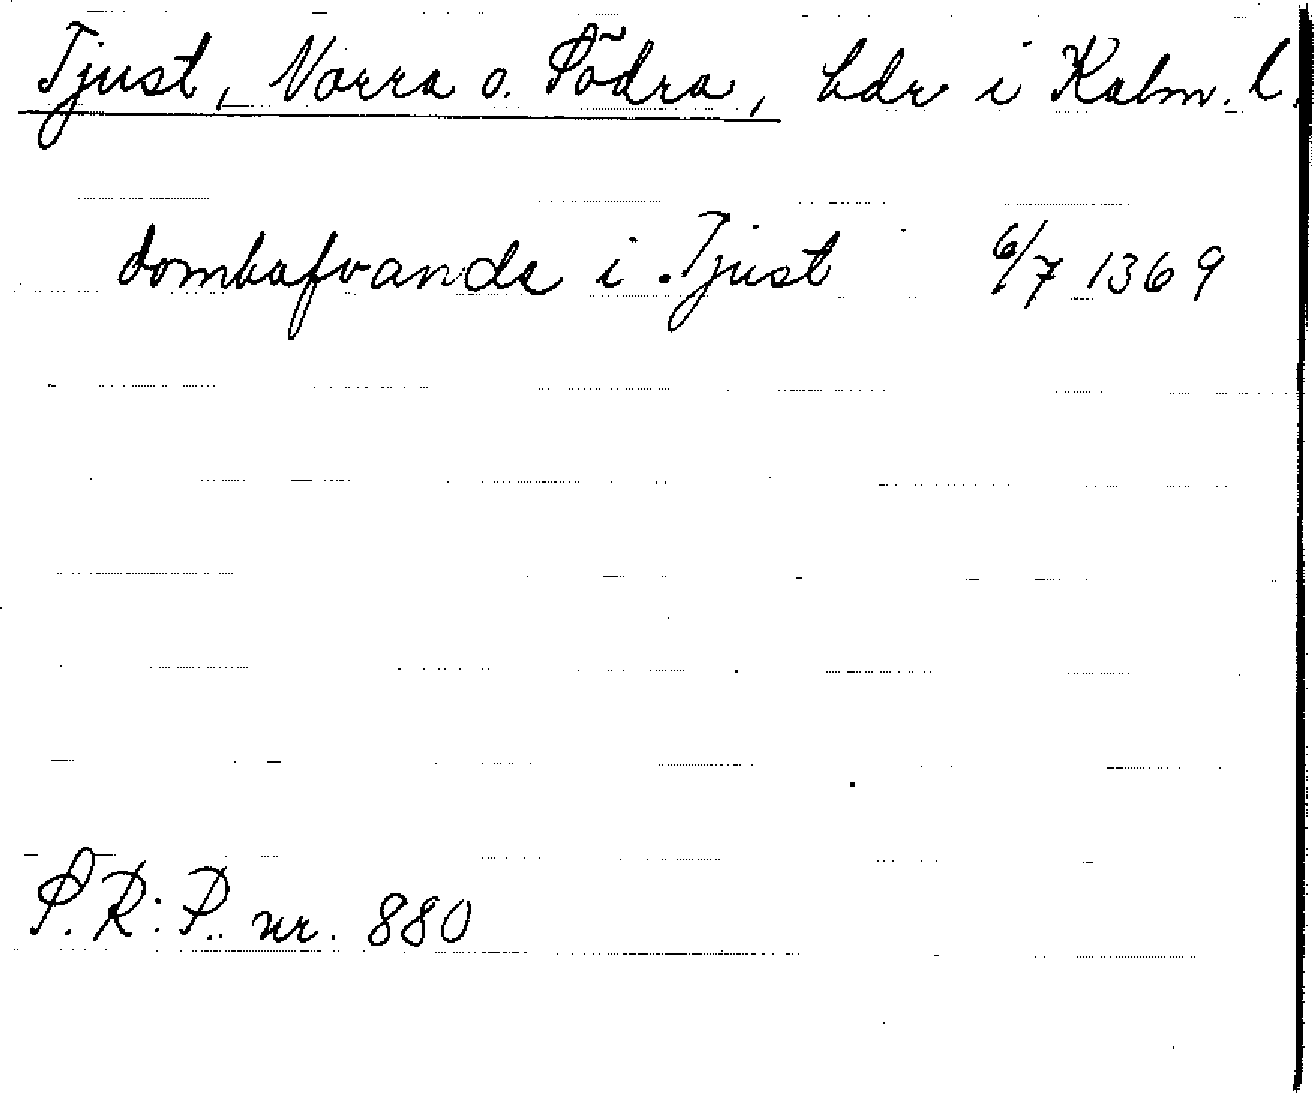 Tjust, Norra o. Södra, hdr i Kalm. l.
domhafvande i Tjust 6/7 1369
S.R:P. nr. 880